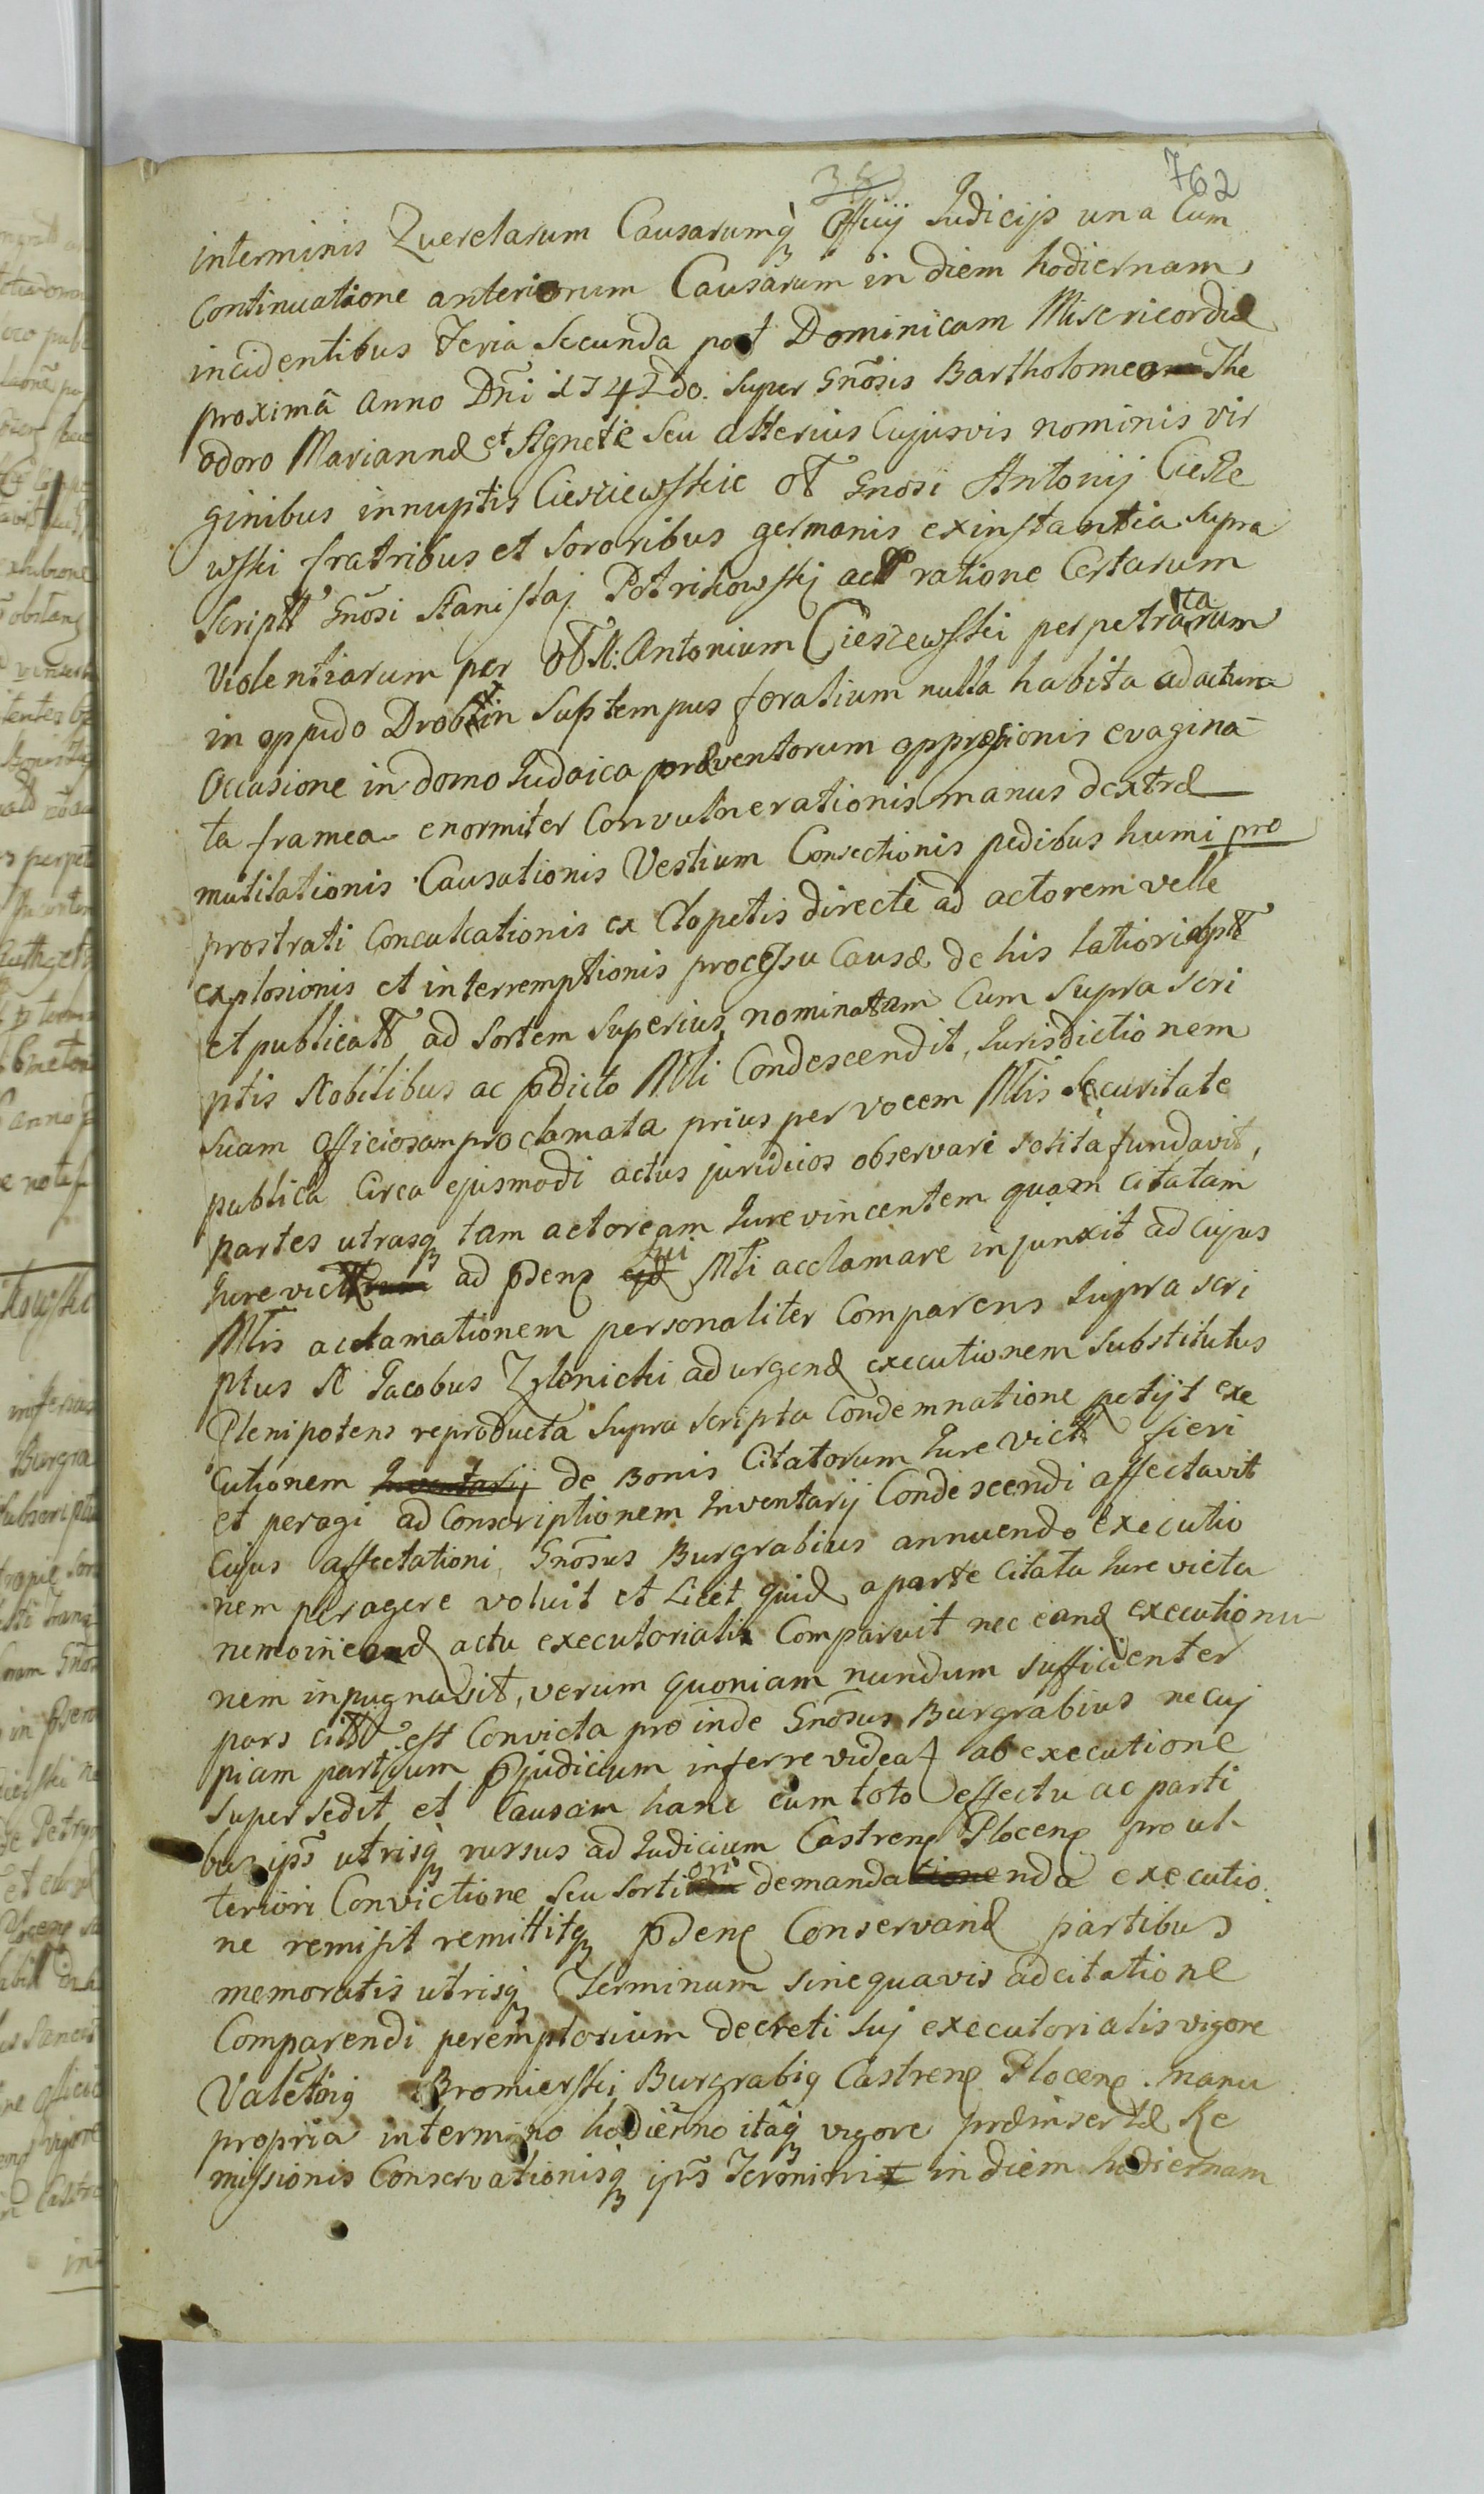 762
interminis Querelarum Causarumq̀ Officij Judicijs una Cum
Continuatione anteriorum Causarum in diem hodiernam
incidentibus Feria Secunda post Dominicam Misericordiæ
proximâ Anno Dñi 1742do. super Gnõsis Bartholomeo The
odoro Mariannæ et Agnetie seu alterius Cujusvis nominis vir
ginibus innuptis Cieszewskie oł Gnosi Antonij Ciesze
wski fratribus et Sororibus germanis exinstantia supra
Scriptt Gnõsi Stanislaj Potrikowskj actt ratione Certarum
Violentiarum per oł N: Antonium Cieszewski perpetratarum
in oppido Drobin sub tempus foralium nulla habita ad actum
Occasione in domo Judaica præventorum oppressionis evagina
ta framea enormiter Convulnerationis manus dextræ
mutilationis Causationis Vestium Consectionis pedibus humi pro
prostrati Conculcationis ex Clopetis directe ad actorem velle
explosionis et interremptionis processu Causæ de his latiori
et publicatt ad sortem superius nominatam Cum supra scri
ptis Nobilibus ac pdicto Mli Condescendit, Jurisdictionem
suam Officiosam proclamata prius per vocem Mlis Securitate
publica Circa ejusmodi actus juridicos observari solita fundavit,
partes utrasq tam actoream Jurevincentem quam Citatam
Jurevictt ad pdens sui Mli acclamare injunxit ad Cujus
Mlis acclamationem personaliter Comparens supra scri
ptus N Jacobus Zglenicki ad urgend executionem substitutus
Plenipotens reproducta supra scripta Condemnatione petijt exe
Cutionem Inventarij de Bonis Citatorum Jure victt fieri
et peragi ad Conscriptionem Inventarij Condescendi affectavit
Cujus affectationi Gnõsus Burgrabius annuendo executio
nem peragere voluit et Licet quid a parte Citata Jure victa
nemo in eand actu executoriali Comparuit nec eand executionu
nem inpugnavit, verum quoniam nundum sufficienter
pars citt est Convicta pro inde Gnõsus Burgrabius ne cuj
piam partium pjudicium inferre videat ab executione
supersedit et Causam hanc cum toto effectu ac parti
bus ips utrisq rursus ad Judicium Castrens Plocens pro ul-
teriori Convictione seu sortiori demandanda executio
ne remisit remittitq pdens Conservand partibus
memoratis utrisq Terminum sine quavis adcitatione
Comparendi peremptorium decreti suj executorialis vigore
Bromierski Burgrabiq Castrens Plocens manu
propria in termino hodierno itaq vigore præinsertæ Re
missionis Conservationisq in diem hodiernam